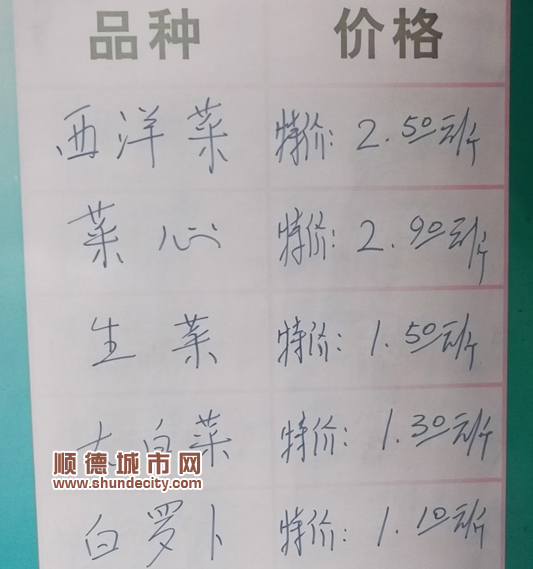 品种 价格
西洋菜 特价: 2.50元/斤
菜心 特价: 2.90元/斤
生菜 特价: 1.50元/斤
大白菜 特价: 1.30元/斤
顺德城市网
www.shundecity.com
白罗卜 特价: 1.10元/斤